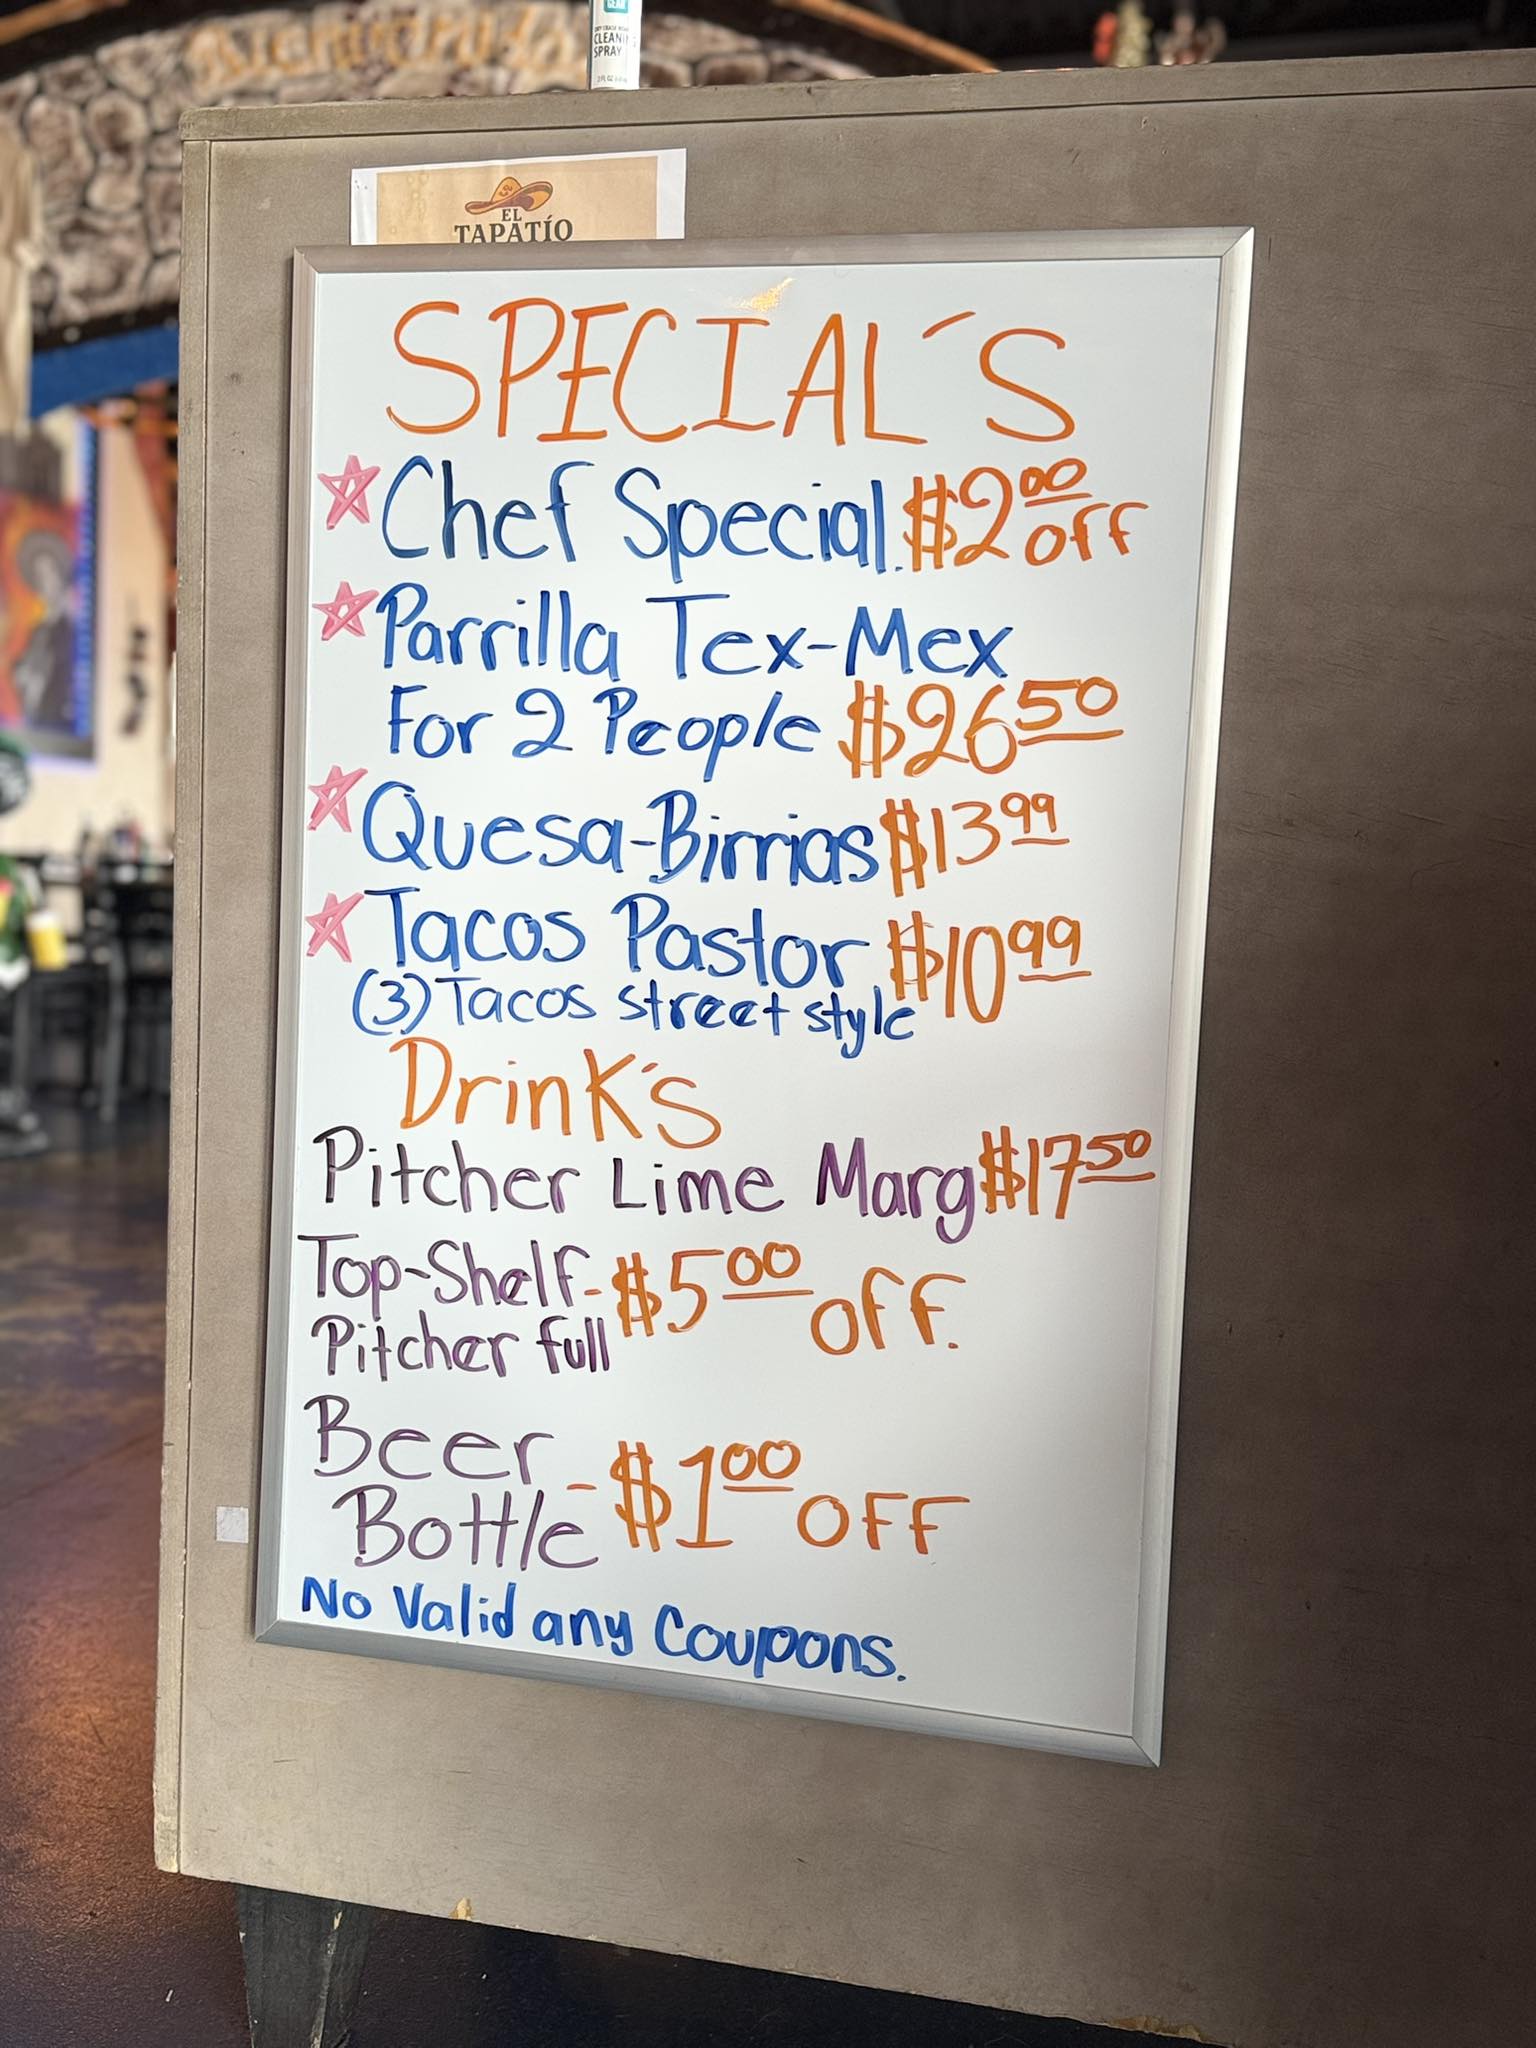 GEAR
DRY ERASE BOARD
CLEANING
SPRAY
EL
TAPATÍO
SPECIAL´S
Chef Special. $2.00 off
Parrilla Tex-Mex
For 2 People $26 50
Quesa-Birrias $13 99
Tacos Pastor $10 99
(3) Tacos street style
Drink´s
Pitcher Lime Marg $17 50
Top-Shelf- $5 00 off.
Pitcher full
Beer
Bottle - $1 00 OFF
No Valid any Coupons.